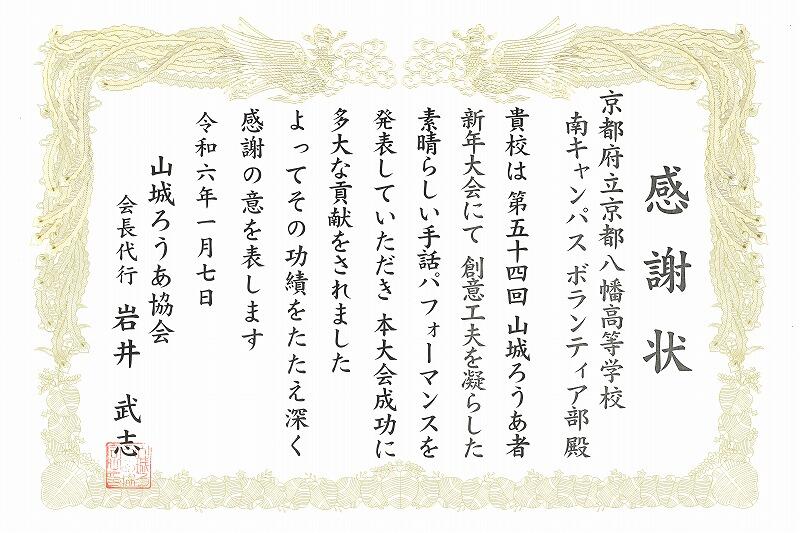 感謝状
京都府立京都八幡高等学校
南キャンパス ボランティア部 殿
貴校は 第五十四回 山城ろうあ者
新年大会にて 創意工夫を凝らした
素晴らしい手話パフォーマンスを
発表していただき 本大会成功に
多大な貢献をされました
よってその功績をたたえ深く
感謝の意を表します
令和六年一月七日
山城ろうあ協会
会長代行 岩井 武志